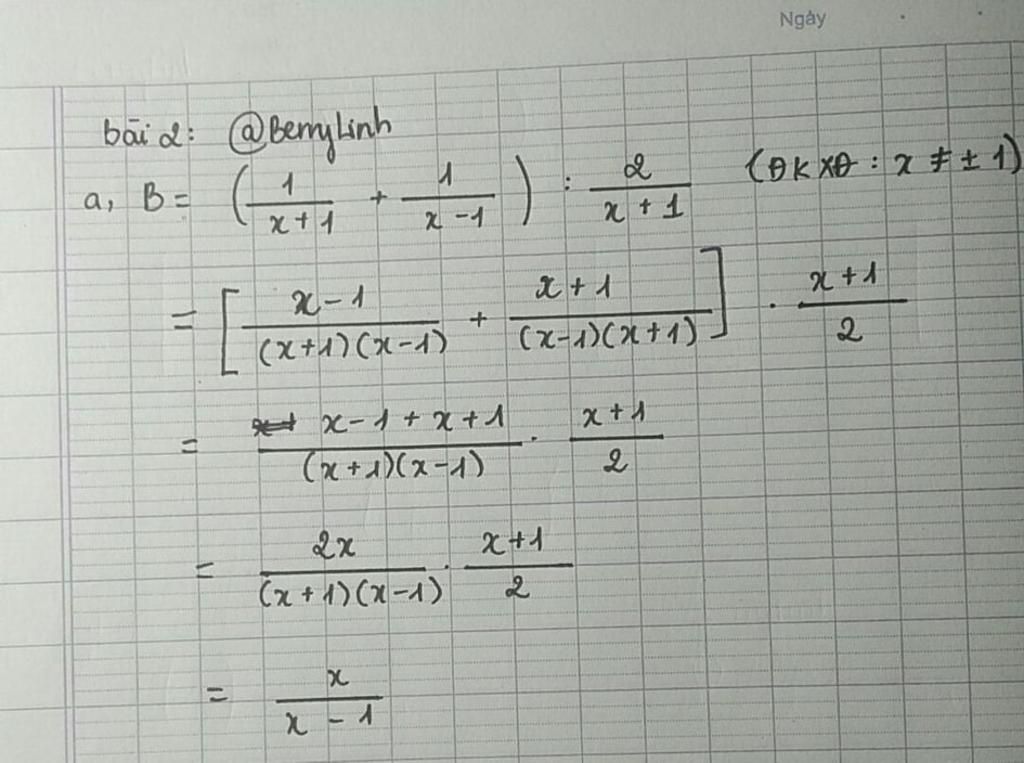 Ngày
bài 2: @BerryLinh
a, B = (1/(x+1) + 1/(x-1)) : 2/(x+1) (ĐKXĐ: x ≠ ± 1)
= [(x-1)/((x+1)(x-1)) + (x+1)/((x-1)(x+1))] . (x+1)/2
= (x-1+x+1)/((x+1)(x-1)) . (x+1)/2
= 2x/((x+1)(x-1)) . (x+1)/2
= x/(x-1)